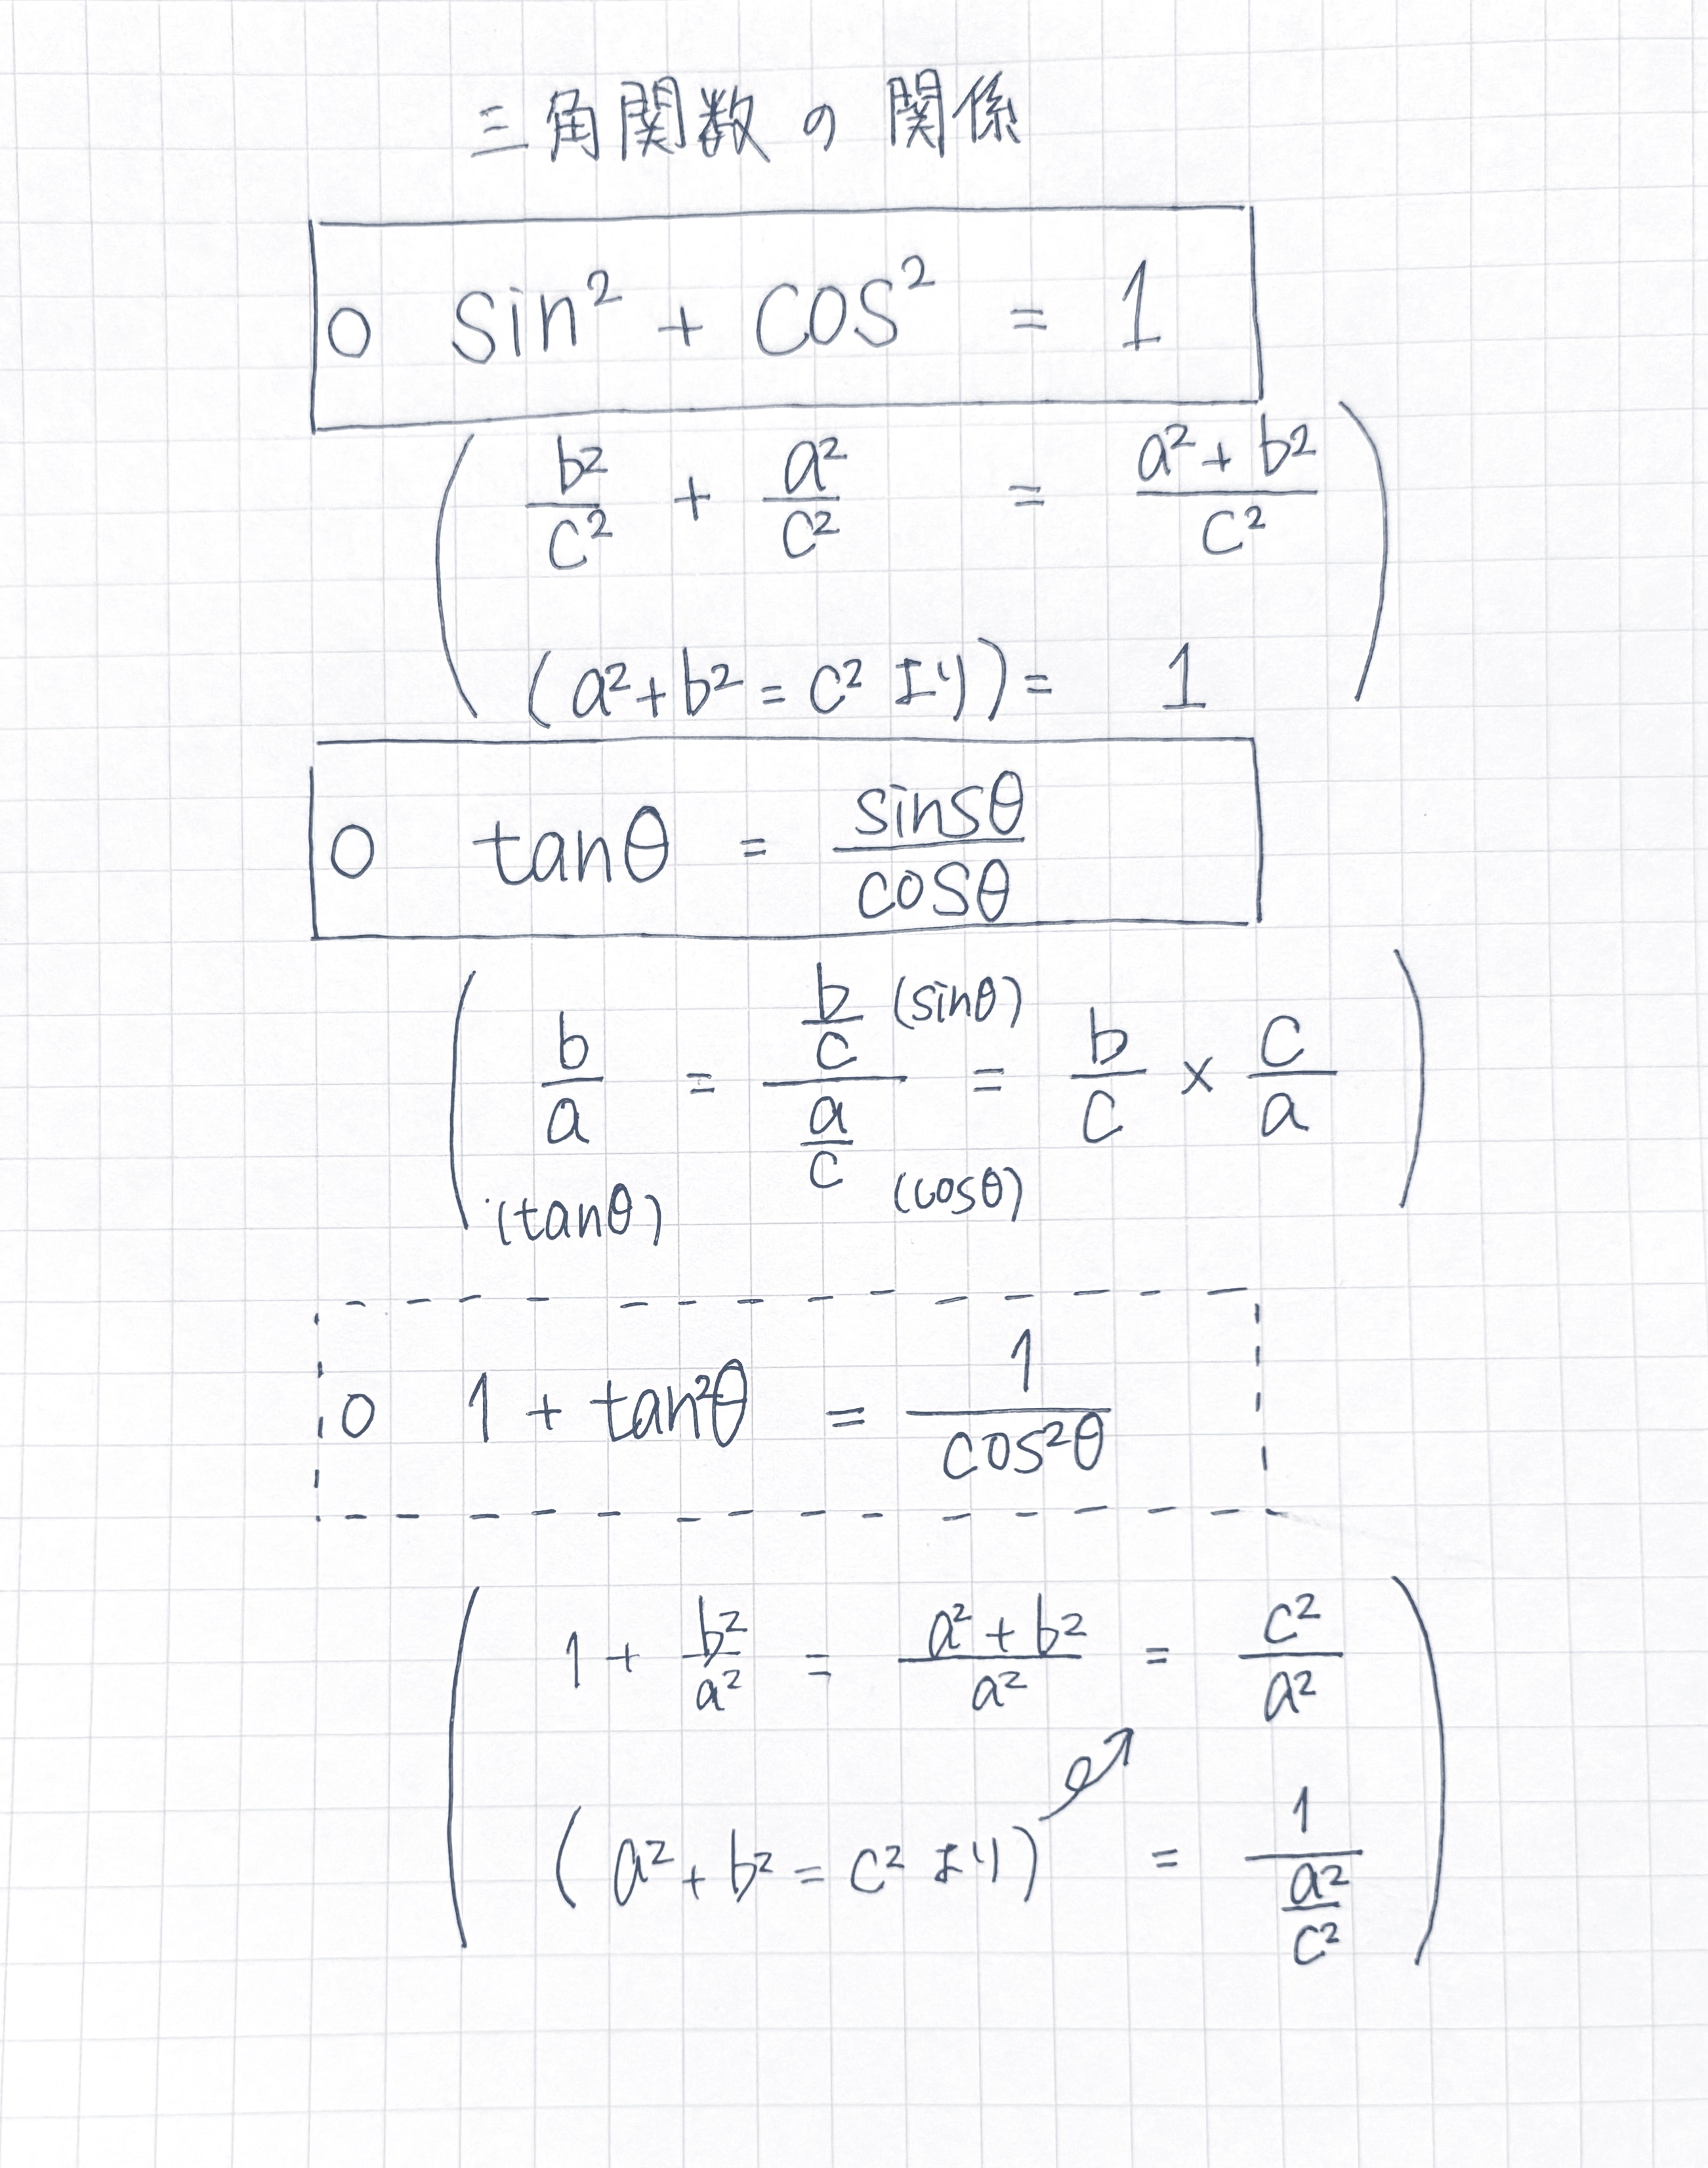 三角関数の関係
○ sin² + cos² = 1
( b²/c² + a²/c² = (a² + b²)/c²
(a² + b² = c² より) = 1 )
○ tanθ = sinsθ/cosθ
( b/a (tanθ) = b/c (sinθ) / a/c (cosθ) = b/c × c/a )
○ 1 + tan²θ = 1/cos²θ
( 1 + b²/a² = (a² + b²)/a² = c²/a²
(a² + b² = c² より) ↗ = 1/(a²/c²) )